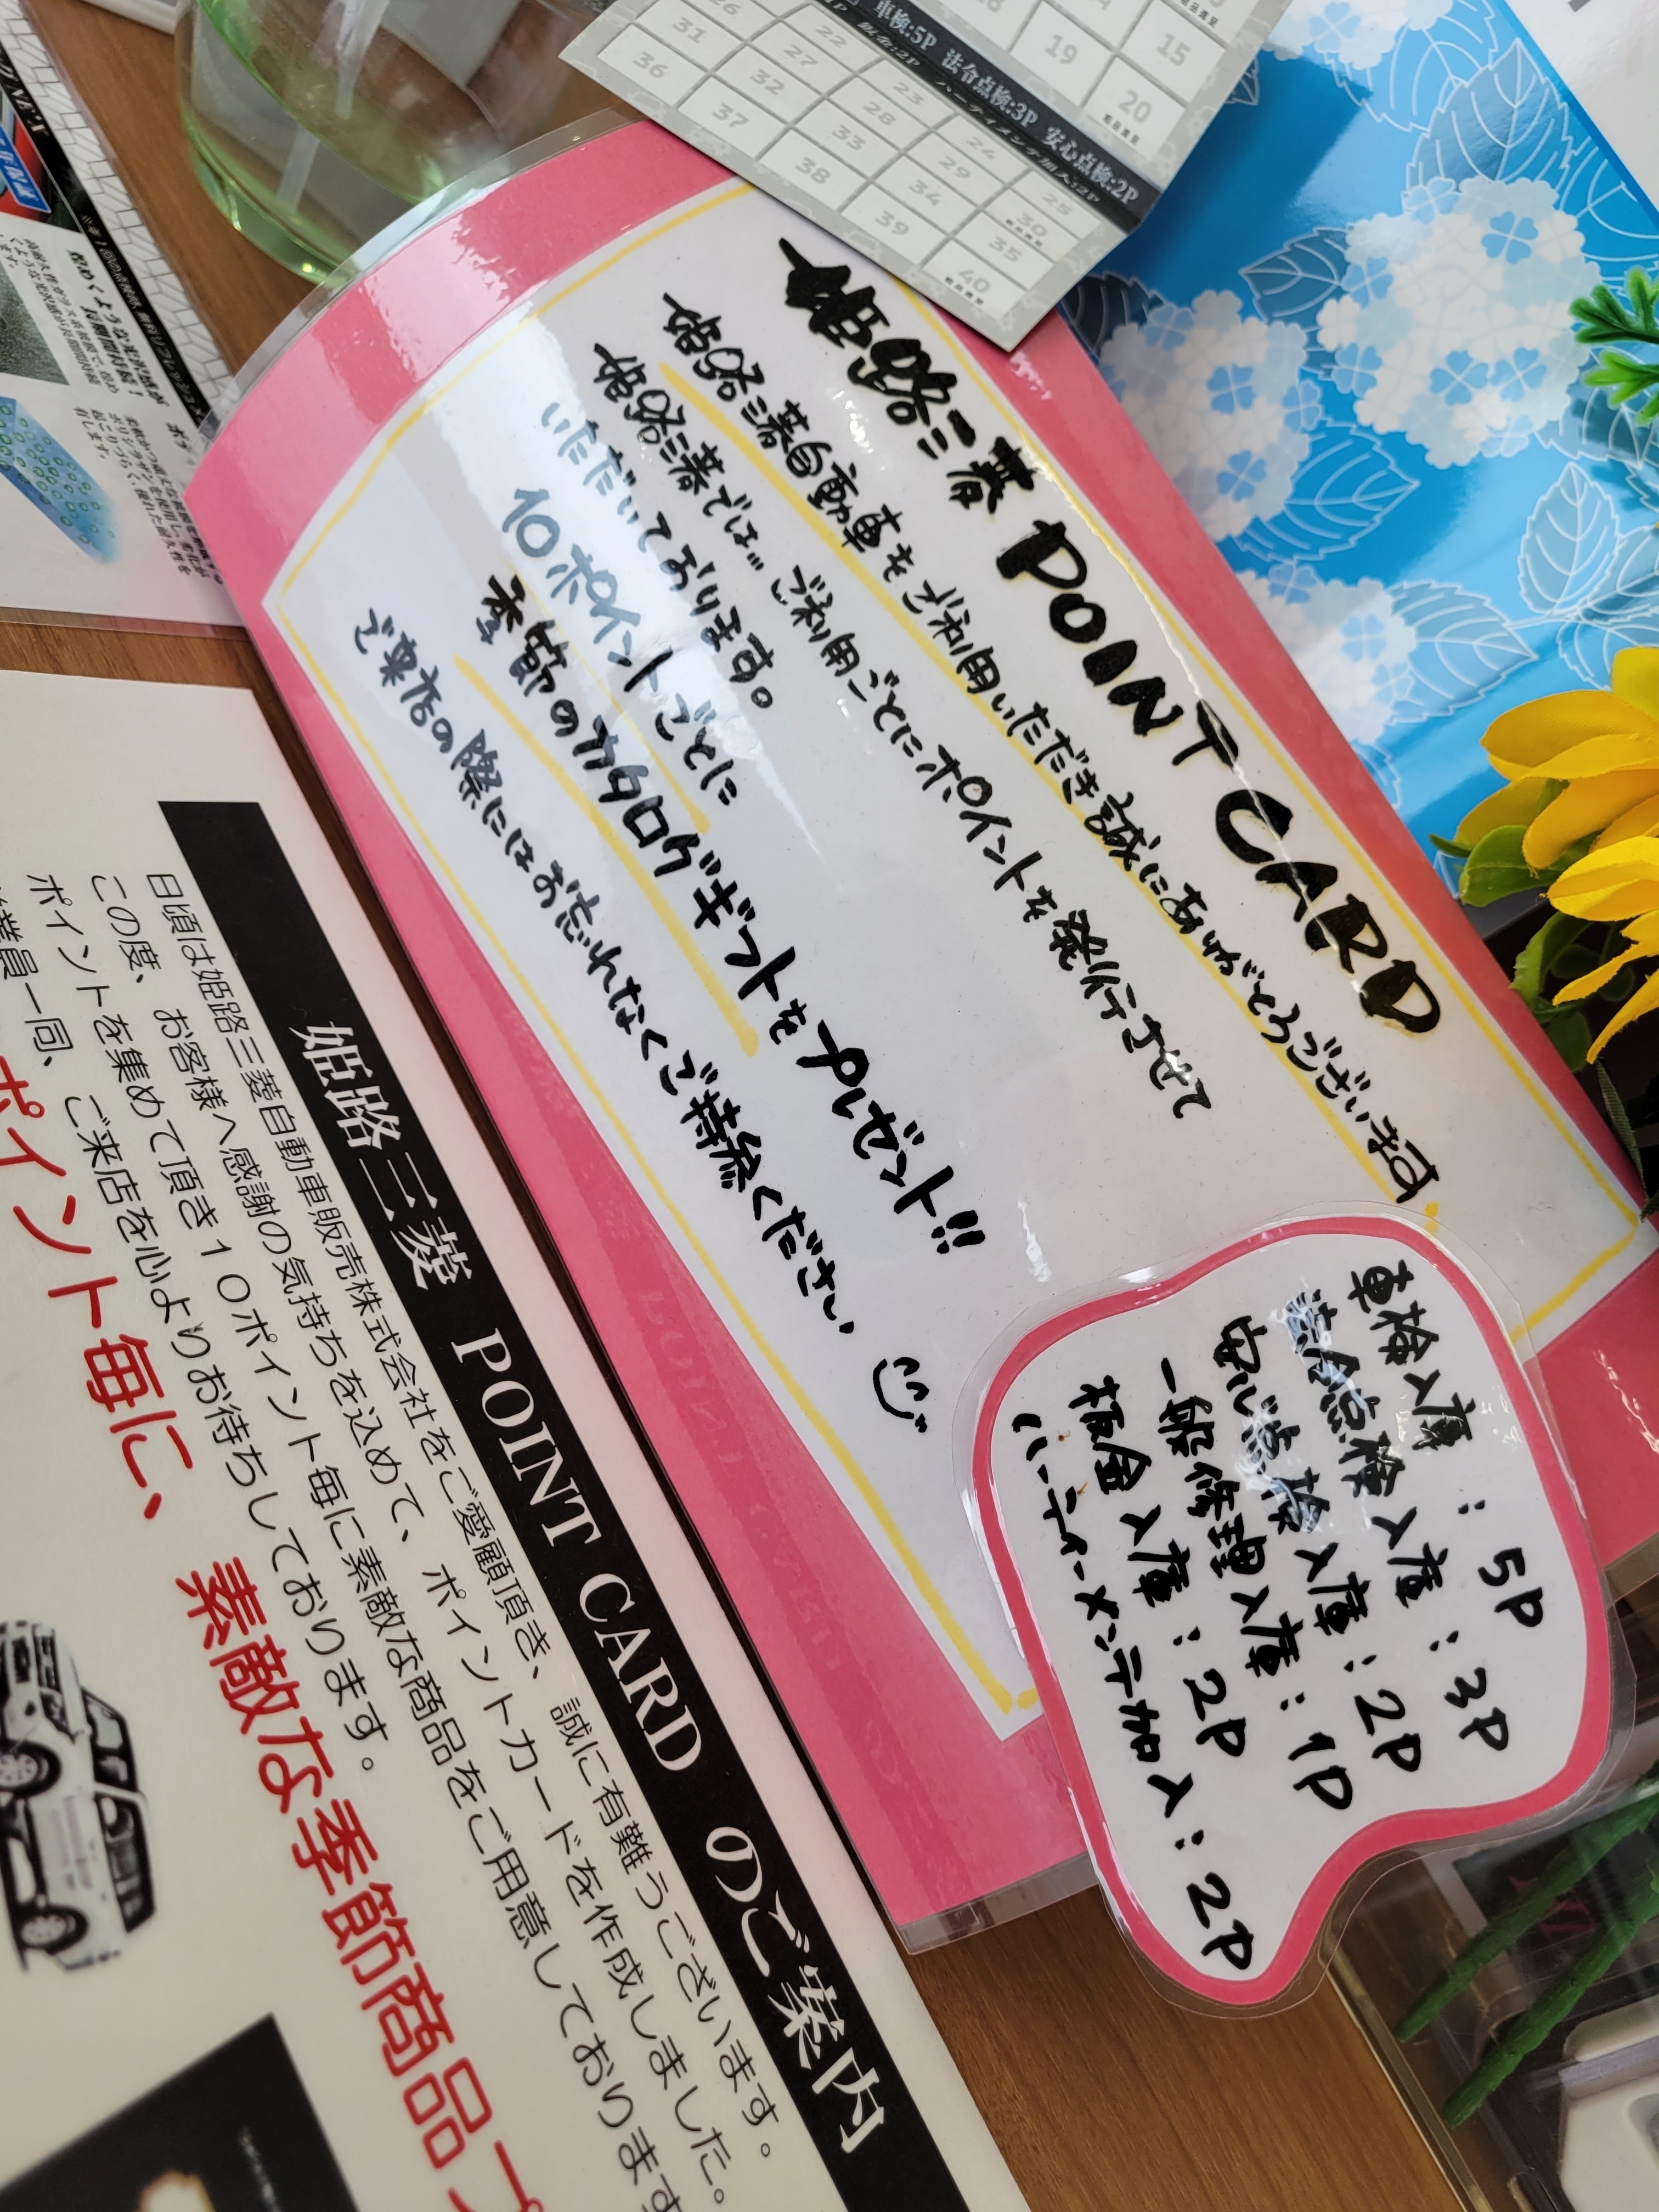 姫路三菱 POINT CARD
姫路三菱自動車をご利用いただき誠にありがとうございます
姫路三菱では… ご利用ごとにポイントを発行させて
いただいております。
10ポイントごとに
季節のカタログギフトをプレゼント!!
ご来店の際にはお忘れなくご持参ください
車検入庫:5P
法令点検入庫:3P
安心点検入庫:2P
一般修理入庫:1P
板金入庫:2P
ハーティーメンテ加入:2P
車検:5P 法令点検:3P 安心点検:2P
15
19
20
22
23
24
25
26
27
28
29
30
31
32
33
34
35
36
37
38
39
40
姫路三菱 POINT CARD のご案内
日頃は姫路三菱自動車販売株式会社をご愛顧頂き、誠に有難うございます。
この度、お客様へ感謝の気持ちを込めて、ポイントカードを作成しました。
ポイントを集めて頂き10ポイント毎に素敵な商品をご用意しております
業員一同、ご来店を心よりお待ちしております。
ポイント毎に、素敵な季節商品プ
煌めくような光沢感が
長期間持続!